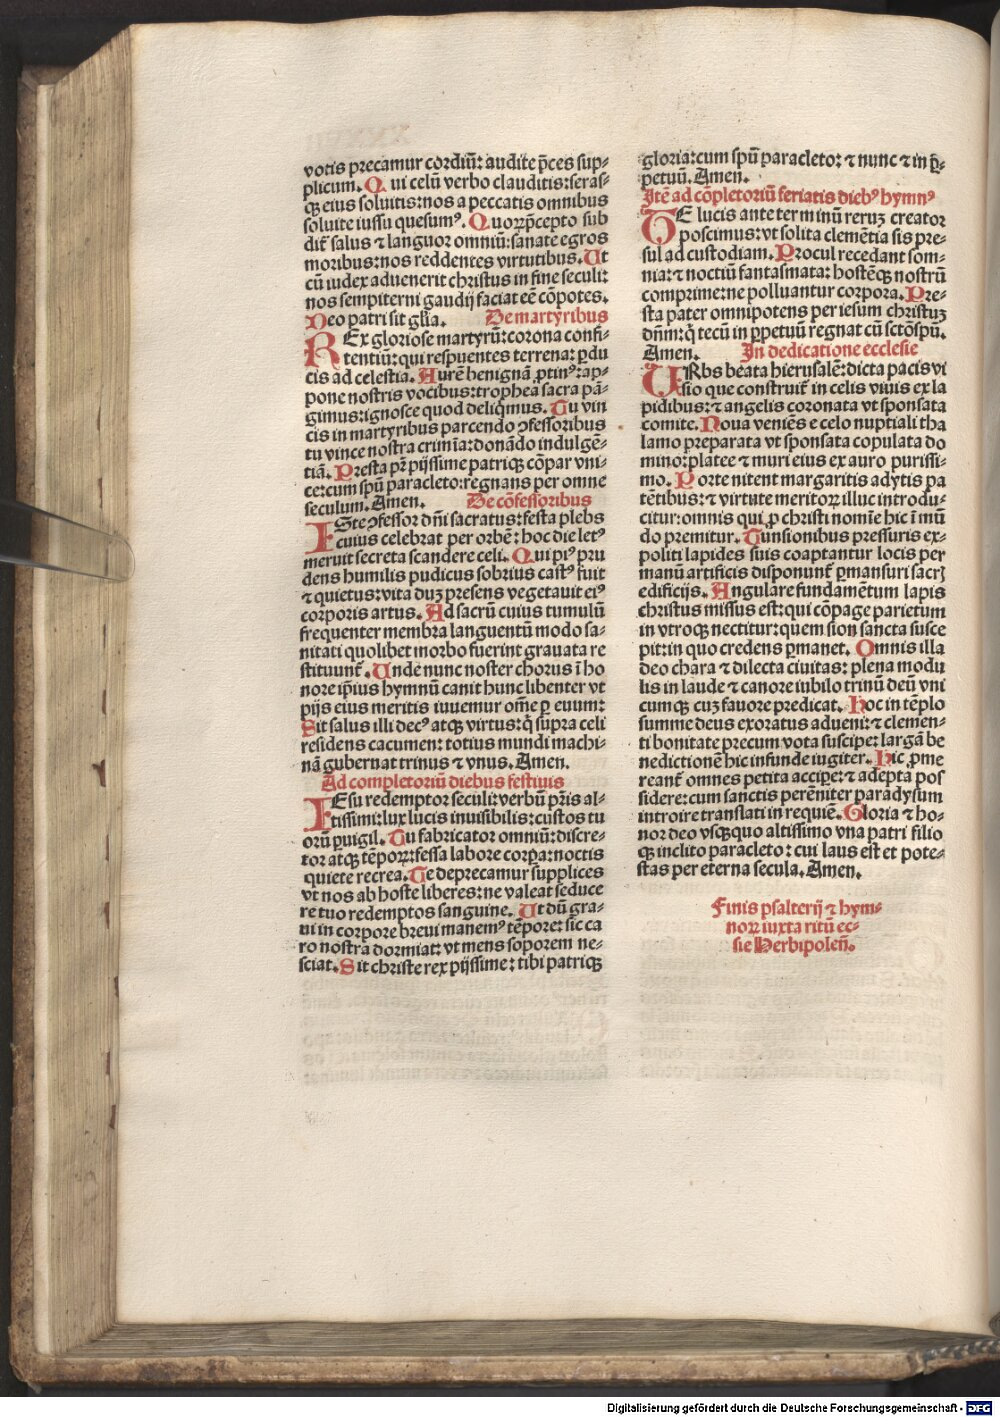 votis precamur cordiũ: audite p̃ces sup⸗
plicum. Qui celũ verbo clauditis: seras⸗
qꝫ eius soluitis: nos a peccatis omnibus
soluite iussu quesumꝰ. Quoꝝ p̃cepto sub
dit̃ salus ⁊ languor omniũ: sanate egros
moribus: nos reddentes virtutibus. Ut
cũ iudex aduenerit christus in fine seculi:
nos sempiterni gaudij faciat eẽ cõpotes.
Deo patri sit gl̃ia. De martyribus
REx gloriose martyrũ: corona confi⸗
tentiũ: qui respuentes terrena: ꝑdu
cis ad celestia. Aurẽ benignã ꝓtinꝰ: ap⸗
pone nostris vocibus: trophea sacra pã⸗
gimus: ignosce quod deliqimus. Tu vin
cis in martyribus parcendo ꝯfessoribus
tu vince nostra crimĩa: donãdo indulgẽ⸗
tiã. Presta pr̃ pijssime patriqꝫ cõpar vni⸗
ce: cum sp̃u paracleto: regnans per omne
seculum. Amen. De cõfessoribus
ISte ꝯfessor dñi sacratus: festa plebs
cuius celebrat per orbẽ: hoc die letꝰ
meruit secreta scandere celi. Qui piꝰ pru
dens humilis pudicus sobrius castꝰ fuit
⁊ quietus: vita duꝫ presens vegetauit eiꝰ
corporis artus. Ad sacrũ cuius tumulũ
frequenter membra languentũ modo sa⸗
nitati quolibet morbo fuerint grauata re
stituunt̃. Unde nunc noster chorus ĩ ho
nore ip̃ius hymnũ canit hunc libenter vt
pijs eius meritis iuuemur om̃e ꝑ euum:
Sit salus illi decꝰ atqꝫ virtus: q̃ supra celi
residens cacumen: totius mundi machi⸗
nã gubernat trinus ⁊ vnus. Amen.
Ad completoriũ diebus festiuis
IEsu redemptor seculi: verbũ pr̃is al⸗
tissimi: lux lucis inuisibilis: custos tu
orũ ꝑuigil. Tu fabricator omniũ: discre⸗
tor atqꝫ tẽpoꝝ: fessa labore corꝑa: noctis
quiete recrea. Te deprecamur supplices
vt nos ab hoste liberes: ne valeat seduce
re tuo redemptos sanguine. Ut dũ gra⸗
ui in corpore breui manemꝰ tẽpore: sic ca
ro nostra dormiat: vt mens soporem ne⸗
sciat. Sit christe rex pijssime: tibi patriqꝫ
gloria: cum sp̃u paracleto: ⁊ nunc ⁊ in ꝑ⸗
petuũ. Amen.
Itẽ ad cõpletoriũ feriatis diebꝰ hymnꝰ
TE lucis ante terminũ reruꝫ creator
poscimus: vt solita clemẽtia sis pre⸗
sul ad custodiam. Procul recedant som⸗
nia: ⁊ noctiũ fantasmata: hostẽqꝫ nostrũ
comprime: ne polluantur corpora. Pre⸗
sta pater omnipotens per iesum christuꝫ
dñm: q̃ tecũ in ꝑpetuũ regnat cũ sctõ sp̃u.
Amen. In dedicatione ecclesie
URbs beata hierusalẽ: dicta pacis vi
sio que construit̃ in celis viuis ex la
pidibus: ⁊ angelis coronata vt sponsata
comite. Noua veniẽs e celo nuptiali tha
lamo preparata vt sponsata copulata do
mino: platee ⁊ muri eius ex auro purissi⸗
mo. Porte nitent margaritis adytis pa
tẽtibus: ⁊ virtute meritoꝝ illuc introdu⸗
citur: omnis qui ꝓ christi nomĩe hic ĩ mũ
do premitur. Tunsionibus pressuris ex⸗
politi lapides suis coaptantur locis per
manũ artificis disponunt̃ ꝑmansuri sacꝝ
edificijs. Angulare fundamẽtum lapis
christus missus est: qui cõpage parietum
in vtroqꝫ nectitur: quem sion sancta susce
pit: in quo credens ꝑmanet. Omnis illa
deo chara ⁊ dilecta ciuitas: plena modu
lis in laude ⁊ canore iubilo trinũ deũ vni
cumqꝫ cuꝫ fauore predicat. Hoc in tẽplo
summe deus exoratus adueni: ⁊ clemen⸗
ti bonitate precum vota suscipe: largã be
nedictionẽ hic infunde iugiter. Hic ꝓme
reant̃ omnes petita accipe: ⁊ adepta pos
sidere: cum sanctis perẽniter paradysum
introire translati in requiẽ. Gloria ⁊ ho⸗
nor deo vsqꝫquo altissimo vna patri filio
qꝫ inclito paracleto: cui laus est et pote⸗
stas per eterna secula. Amen.
Finis psalterij ⁊ hym⸗
noꝝ iuxta ritũ ec⸗
sie Herbipoleñ.
Digitalisierung gefördert durch die Deutsche Forschungsgemeinschaft - DFG